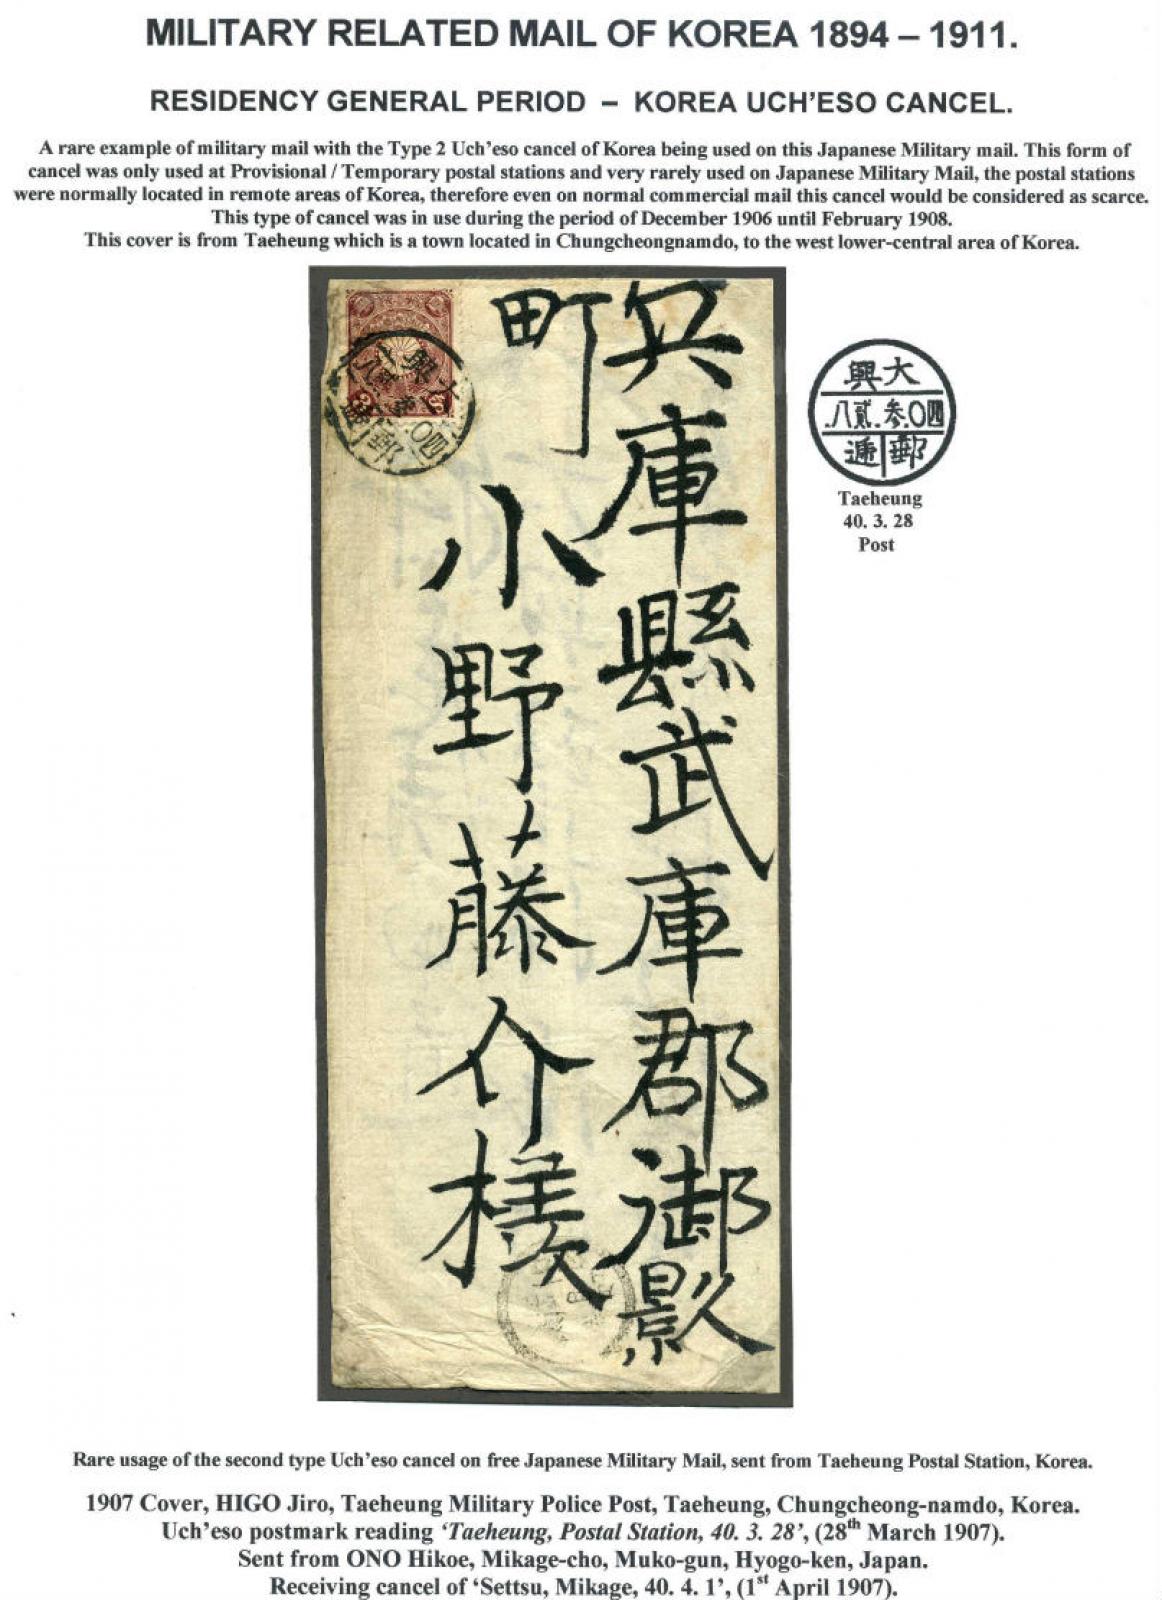 MILITARY RELATED MAIL OF KOREA 1894 – 1911.
RESIDENCY GENERAL PERIOD – KOREA UCH'ESO CANCEL.
A rare example of military mail with the Type 2 Uch'eso cancel of Korea being used on this Japanese Military mail. This form of
cancel was only used at Provisional / Temporary postal stations and very rarely used on Japanese Military Mail, the postal stations
were normally located in remote areas of Korea, therefore even on normal commercial mail this cancel would be considered as scarce.
This type of cancel was in use during the period of December 1906 until February 1908.
This cover is from Taeheung which is a town located in Chungcheongnamdo, to the west lower-central area of Korea.
兵庫縣武庫郡御影
町
小野藤介様
大興
四〇.参.貳八.
郵遞
興大
八貳.参.〇四
遞郵
Taeheung
40. 3. 28
Post
Rare usage of the second type Uch'eso cancel on free Japanese Military Mail, sent from Taeheung Postal Station, Korea.
1907 Cover, HIGO Jiro, Taeheung Military Police Post, Taeheung, Chungcheong-namdo, Korea.
Uch'eso postmark reading 'Taeheung, Postal Station, 40. 3. 28', (28th March 1907).
Sent from ONO Hikoe, Mikage-cho, Muko-gun, Hyogo-ken, Japan.
Receiving cancel of 'Settsu, Mikage, 40. 4. 1', (1st April 1907).